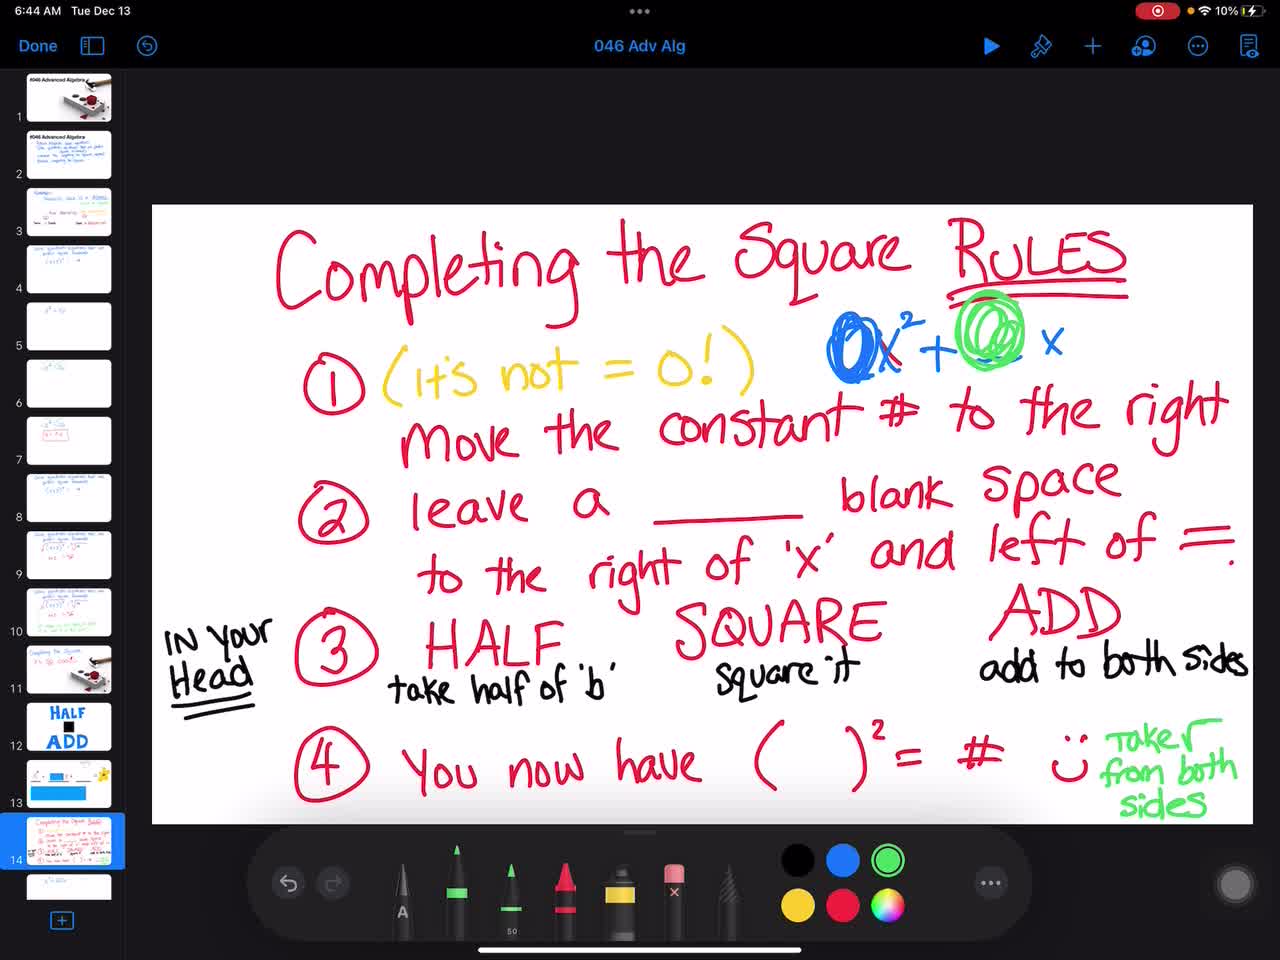 6:44 AM Tue Dec 13
10%
Done
046 Adv Alg
#046 Advanced Algebra
1
#046 Advanced Algebra
2
3
4
5
6
7
8
9
10
11
HALF
ADD
12
13
14
Completing the Square RULES
x² + x
① (it's not = 0!)
move the constant # to the right
② leave a ____ blank space
to the right of 'x' and left of =.
IN YOUR Head
③ HALF SQUARE ADD
take half of 'b' square it add to both sides
④ You now have ( )² = #
Take √
from both
sides
A
50